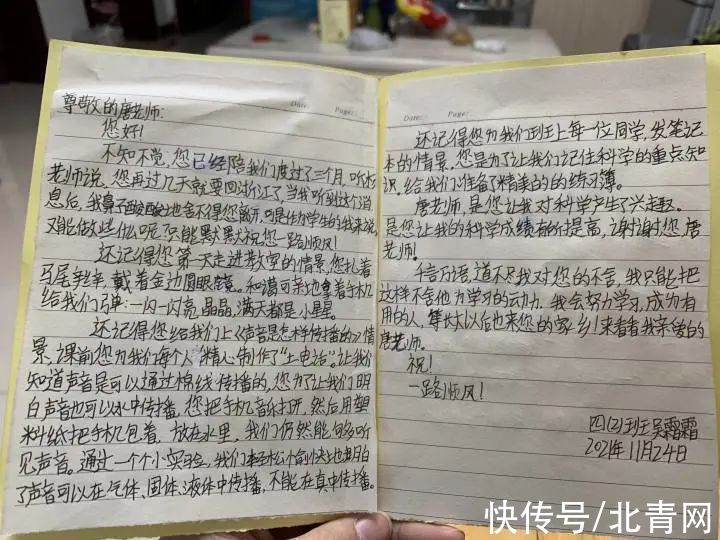 Date:        Page:
尊敬的唐老师:
您好!
不知不觉,您已经陪我们度过了三个月,听
老师说,您再过几天就要回浙江了,当我听到这个消
息后,我鼻子酸酸地舍不得您离开,可是作为学生的我来说
又能做些什么呢,只能默默祝您一路顺风!
还记得您第一天走进教室的情景,您扎着
马尾辫,戴着金边圆眼镜,和蔼可亲地拿着手机
给我们弹:一闪一闪亮晶晶,满天都是小星星
还记得您给我们上《声音是怎样传播的》情
景,课前您为我们每个人精心制作了“土电话”。让我们
知道声音是可以通过棉线传播的,您为了让我们明
白声音也可以水中传播,您把手机音乐打开,然后用塑
料纸把手机包着,放在水里,我们仍然能够听
见声音。通过一个个小实验,我们轻松愉快地明白
了声音可以在气体、固体、液体中传播,不能在真中传播。
Date:        Page:
还记得您为我们班上每一位同学,发笔记
本的情景,您是为了让我们记住科学的重点知
识,给我们准备了精美的的练习簿。
唐老师,是您让我对科学产生了兴趣。
是您让我的科学成绩有所提高,谢谢您,唐
老师。
千言万语,道不尽我对您的不舍,我只能把
这样不舍化为学习的动力。我会努力学习,成为有
用的人,等长大以后也来您的家乡!来看看我亲爱的
唐老师。
祝!
一路顺风!
四(2)班吴霜霜
2021年11月24日
快传号/北青网